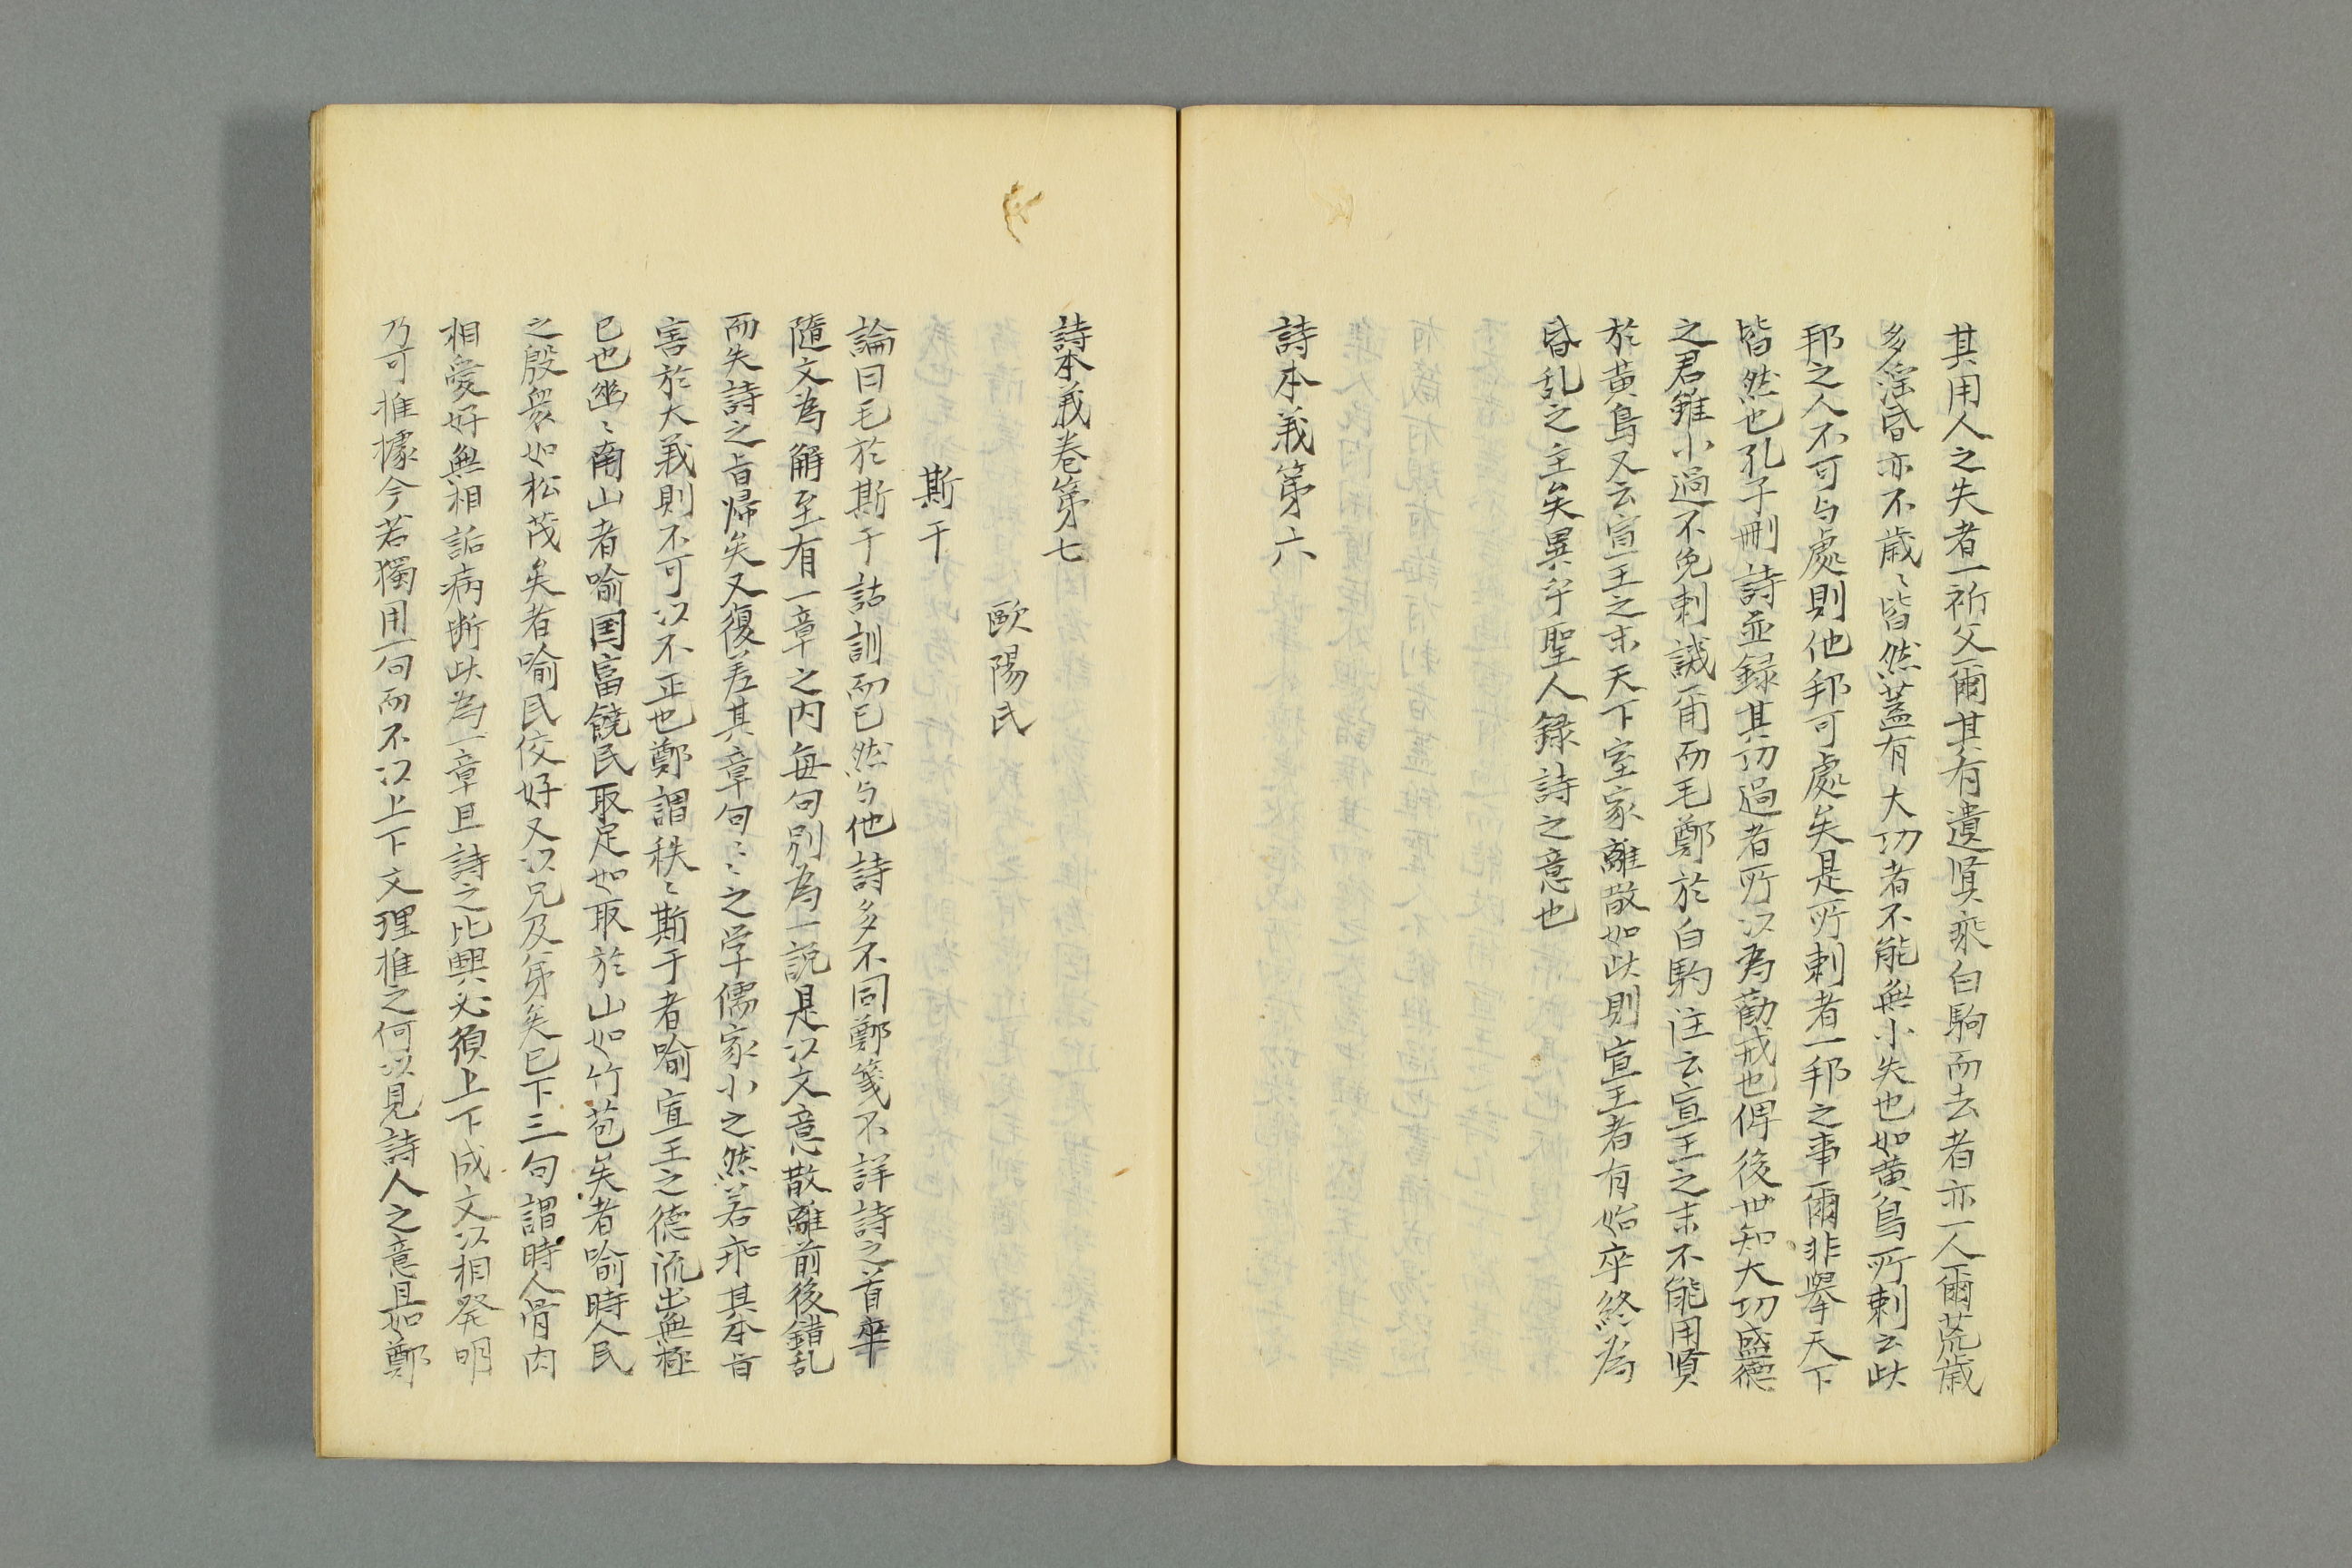 其用人之失者一祈父爾其有遺賢乘白駒而去者亦一人爾荒歳
多淫昏亦不歳〻皆然蓋有大功者不能無小失也如黄鳥所刺云此
邦之人不可与處則他邦可處矣是所刺者一邦之事爾非舉天下
皆然也孔子刪詩並録其功過者所以為勸戒也俾後世知大功盛徳
之君雖小過不免刺譏爾而毛鄭於白駒注云宣王之末不能用賢
於黄鳥又云宣王之末天下室家離散如此則宣王者有始卒終為
昏乱之主矣異乎聖人録詩之意也
詩本義第六
詩本義巻第七
歐陽氏
斯干
論曰毛於斯干詁訓而已然与他詩多不同鄭箋不詳詩之首卒
隨文為解至有一章之内毎句別為一説是以文意散離前後錯乱
而失詩之旨帰矣又復差其章句〻之学儒家小之然若乖其本旨
害於大義則不可以不正也鄭謂秩〻斯干者喻宣王之徳流出無極
已也幽〻南山者喻国富饒民取足如取於山如竹苞矣者喻時人民
之殷衆如松茂矣者喻民佼好又以兄及弟矣已下三句謂時人骨肉
相愛好無相詬病断此為一章且詩之比興必須上下成文以相発明
乃可推據今若獨用一句而不以上下文理推之何以見詩人之意且如鄭